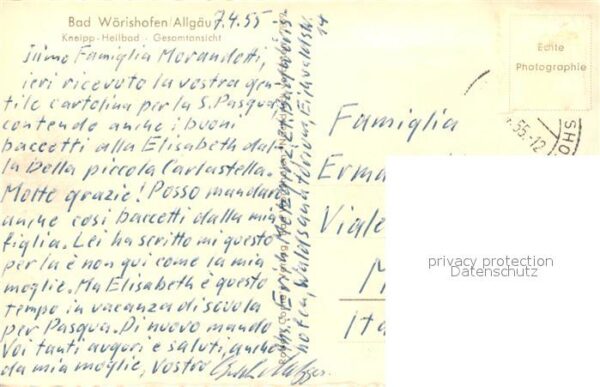 Bad Wörishofen/Allgäu 7.4.55
Kneipp-Heilbad - Gesamtansicht
Famiglia Morandotti,
ieri ricevuto la vostra gen-
tile cartolina per la S. Pasqua
contendo anche i buoni
baccetti alla Elisabeth dal-
la bella piccola Carlastella.
Molte grazie! Posso mandare
anche cosi baccetti dalla mia
figlia. Lei ha scritto mi questo
per la è non qui come la mia
moglie. Ma Elisabeth è questo
tempo in vacanza di scuola
per Pasqua. Di nuovo mando
Voi tanti auguri e saluti, anche
da mia moglie, Vostro
Erich Metzger
hofen, Waldsanatorium,
14
Echte
Photographie
55.-12
Famiglia
Erma
Viale
M
Ita
privacy protection
Datenschutz